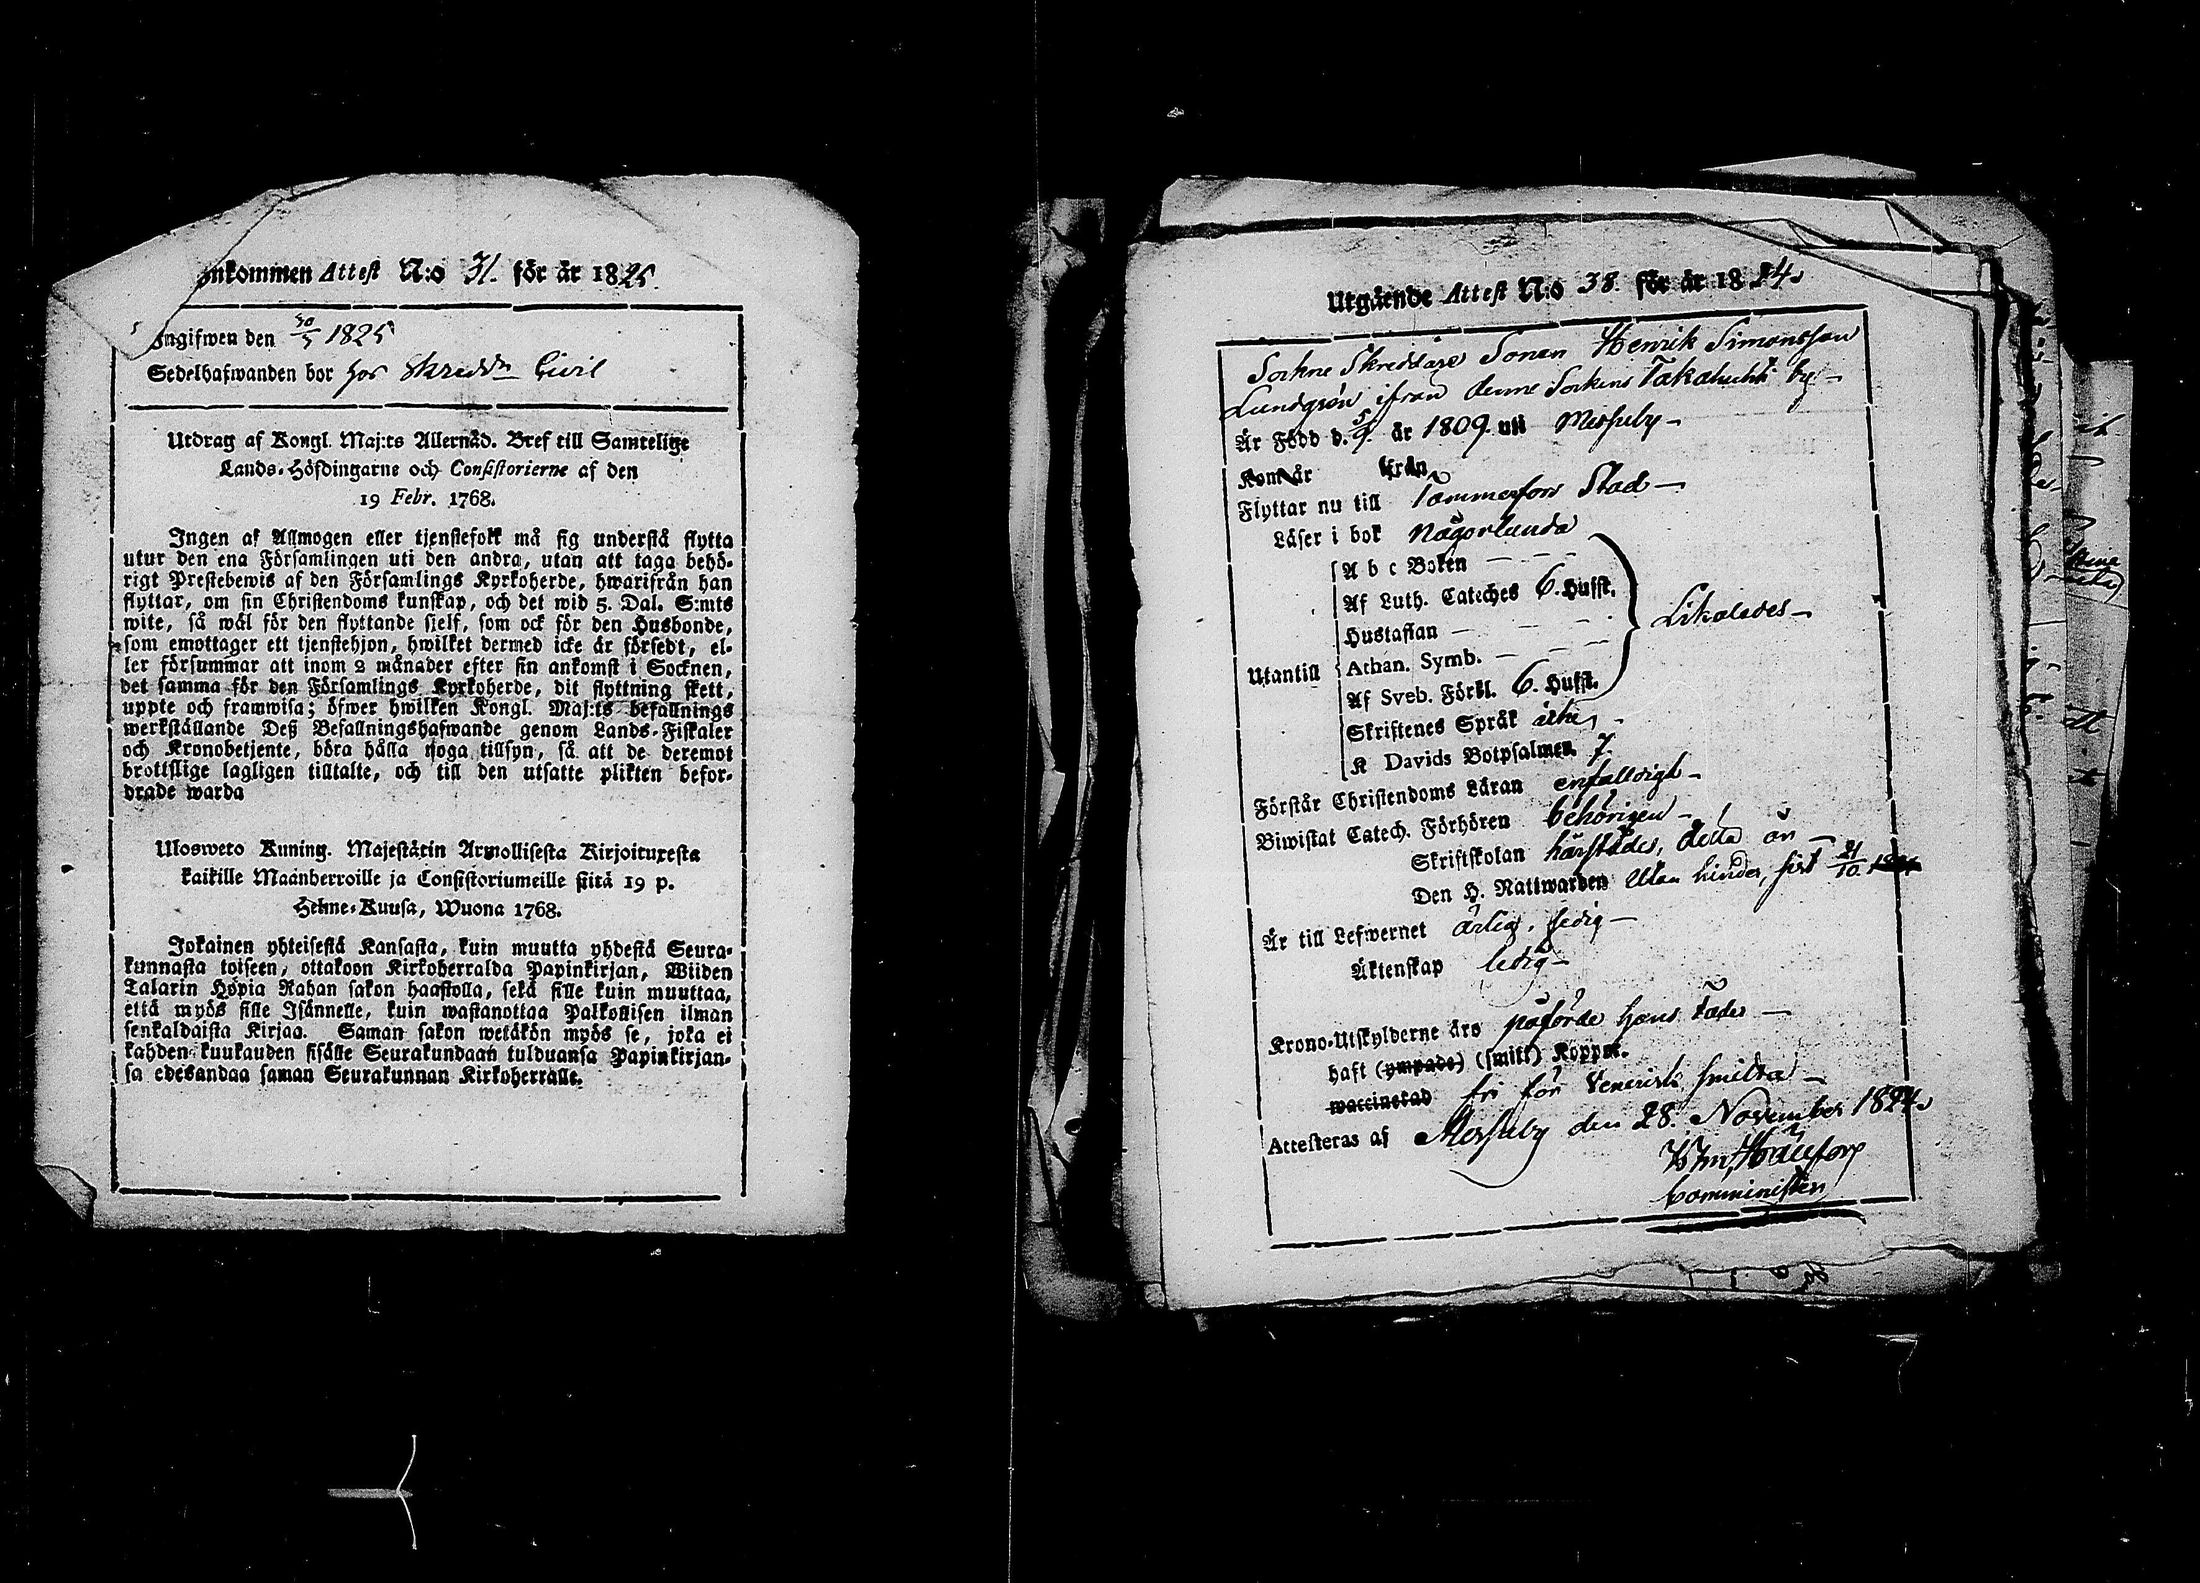 nkommen Attest N:o 31. för år 1825.
Ingifwen den 30/5 1825
Sedelhafwanden bor hos Skredd:n Civil
Utdrag af Kongl. Maj:ts Allernåd. Bref till Samtelige
Lands-Höfdingarne och Consistorierne af den
19 Febr. 1768.
Ingen af Allmogen eller tjenstefolk må sig understå flytta
utur den ena Församlingen uti den andra, utan att taga behö-
rigt Prestebewis af den Församlings Kyrkoherde, hwarifrån han
flyttar, om sin Christendoms kunskap, och det wid 5. Dal. S:mts
wite, så wäl för den flyttande sielf, som ock för den Husbonde,
som emottager ett tjenstehjon, hwilket dermed icke är försedt, el-
ler försummar att inom 2 månader efter sin ankomst i Socknen,
det samma för den Församlings Kyrkoherde, dit flyttning skett,
uppte och framwisa; öfwer hwilken Kongl. Maj:ts befallnings
werkställande Deß Befallningshafwande genom Lands-Fiskaler
och Kronobetjente, böra hålla noga tillsyn, så att de deremot
brottslige lagligen tilltalte, och till den utsatte plikten befor-
drade warda
Ulosweto Kuning. Majestätin Armollisesta Kirjoituxesta
kaikille Maanherroille ja Consistoriumeille siitä 19 p.
Helme-Kuusa, Wuona 1768.
Jokainen yhteisestä Kansasta, kuin muutta yhdestä Seura-
kunnasta toiseen, ottakoon Kirkoherralda Papinkirjan, Wiiden
Talarin Höpia Rahan sakon haastolla, sekä sille kuin muuttaa,
että myös sille Isännelle, kuin wastanottaa Palkollisen ilman
senkaldaista Kirjaa. Saman sakon wetäkön myös se, joka ei
kahden kuukauden sisälle Seurakundaan tulduansa Papinkirjan-
sa edesandaa saman Seurakunnan Kirkoherralle.
Utgående Attest N:o 38. för år 1824.
Sockne Skreddare Sonen Henrik Simonsson
Lundgrén ifrån denne Sockens Takahuhti by –
Är Född d. 5/9. år 1809. uti Messuby –
Kom år från
Flyttar nu till Tammerfors Stad –
Läser i bok någorlunda
A b c Boken – – –
Af Luth. Cateches 6. Hufst.
Hustaflan – – –
Likaledes –
Utantill Athan. Symb. – – –
Af Sveb. Förkl. 6. Hufst.
Skriftenes Språk
K Davids Botpsalmen 7.
Förstår Christendoms Läran enfaldigt –
Biwistat Catech. Förhören behörigen –
Skriftskolan härstädes, detta år –
Den H. Nattwarden Utan hinder, sist 21/10 1824
Är till Lefwernet ärlig, sedig –
Äktenskap ledig –
Krono-Utskylderne äro påförde hans fader –
haft (ympade) (smitt) Koppor.
waccinerad fri för Venerisk smitta –
Attesteras af Messuby den 28. November 1824.
Comminister